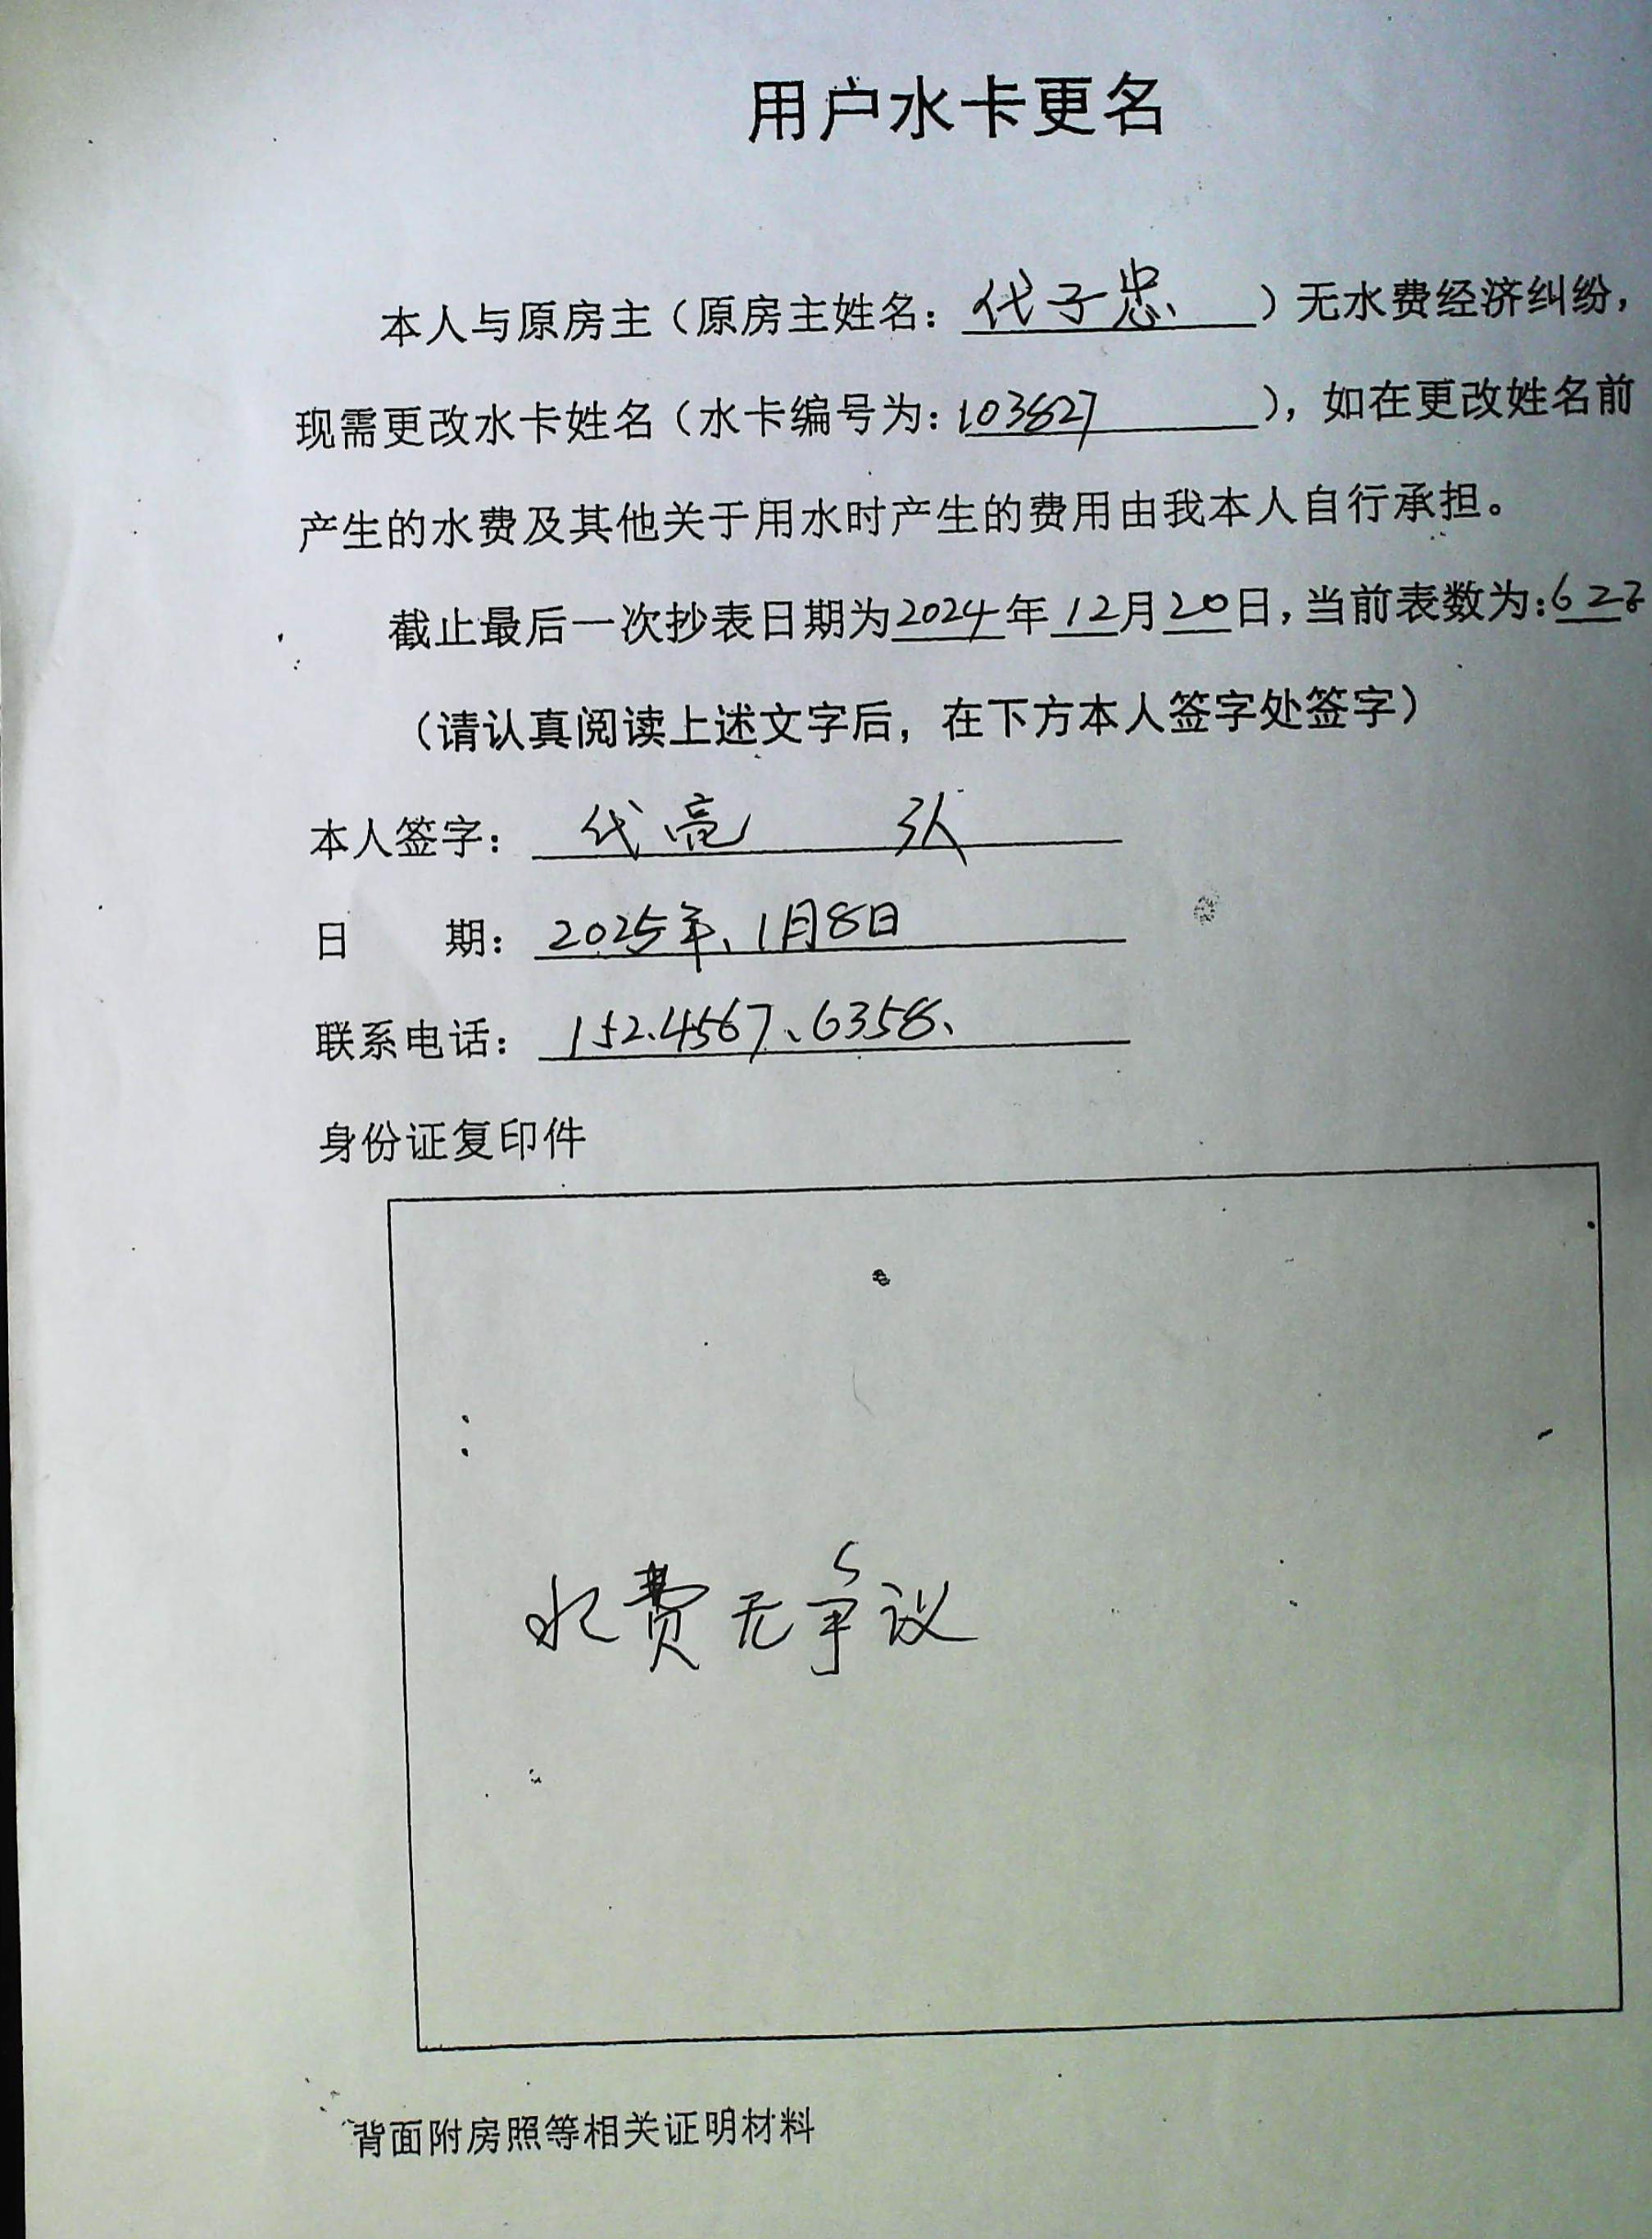 用户水卡更名
本人与原房主（原房主姓名：代子忠）无水费经济纠纷，
现需更改水卡姓名（水卡编号为：103827），如在更改姓名前
产生的水费及其他关于用水时产生的费用由我本人自行承担。
截止最后一次抄表日期为2024年12月20日，当前表数为：
（请认真阅读上述文字后，在下方本人签字处签字）
本人签字：代亮
日 期：2025年、1月8日
联系电话：152.4567、6358、
身份证复印件
水费无争议
背面附房照等相关证明材料